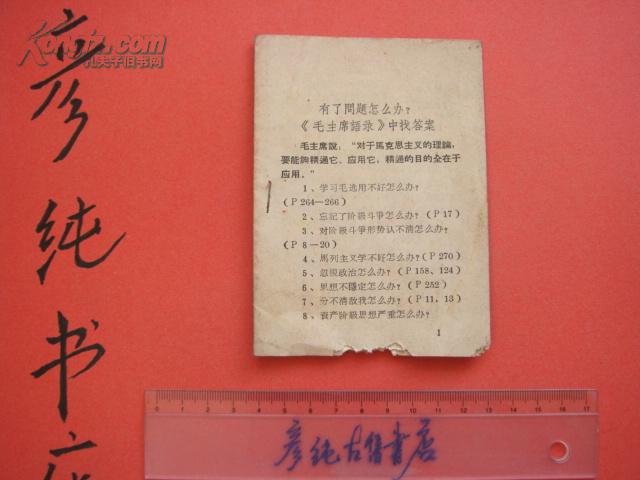 彦纯书店
kongfz.com
孔夫子旧书网
有了問題怎么办？
《毛主席語录》中找答案
毛主席說：“对于馬克思主义的理論，
要能夠精通它、应用它，精通的目的全在于
应用。”
1、学习毛选用不好怎么办？
（P264—266）
2、忘記了阶級斗爭怎么办？（P17）
3、对阶級斗爭形势认不清怎么办？
（P8—20）
4、馬列主义学不好怎么办？（P270）
5、忽視政治怎么办？（P158、124）
6、思想不穩定怎么办？（P252）
7、分不清敌我怎么办？（P11、13）
8、資产阶級思想严重怎么办？
1
0 1 2 3 4 5 6 7 8 9 10 11 12 13 14 15 16 17
彦纯古旧书店